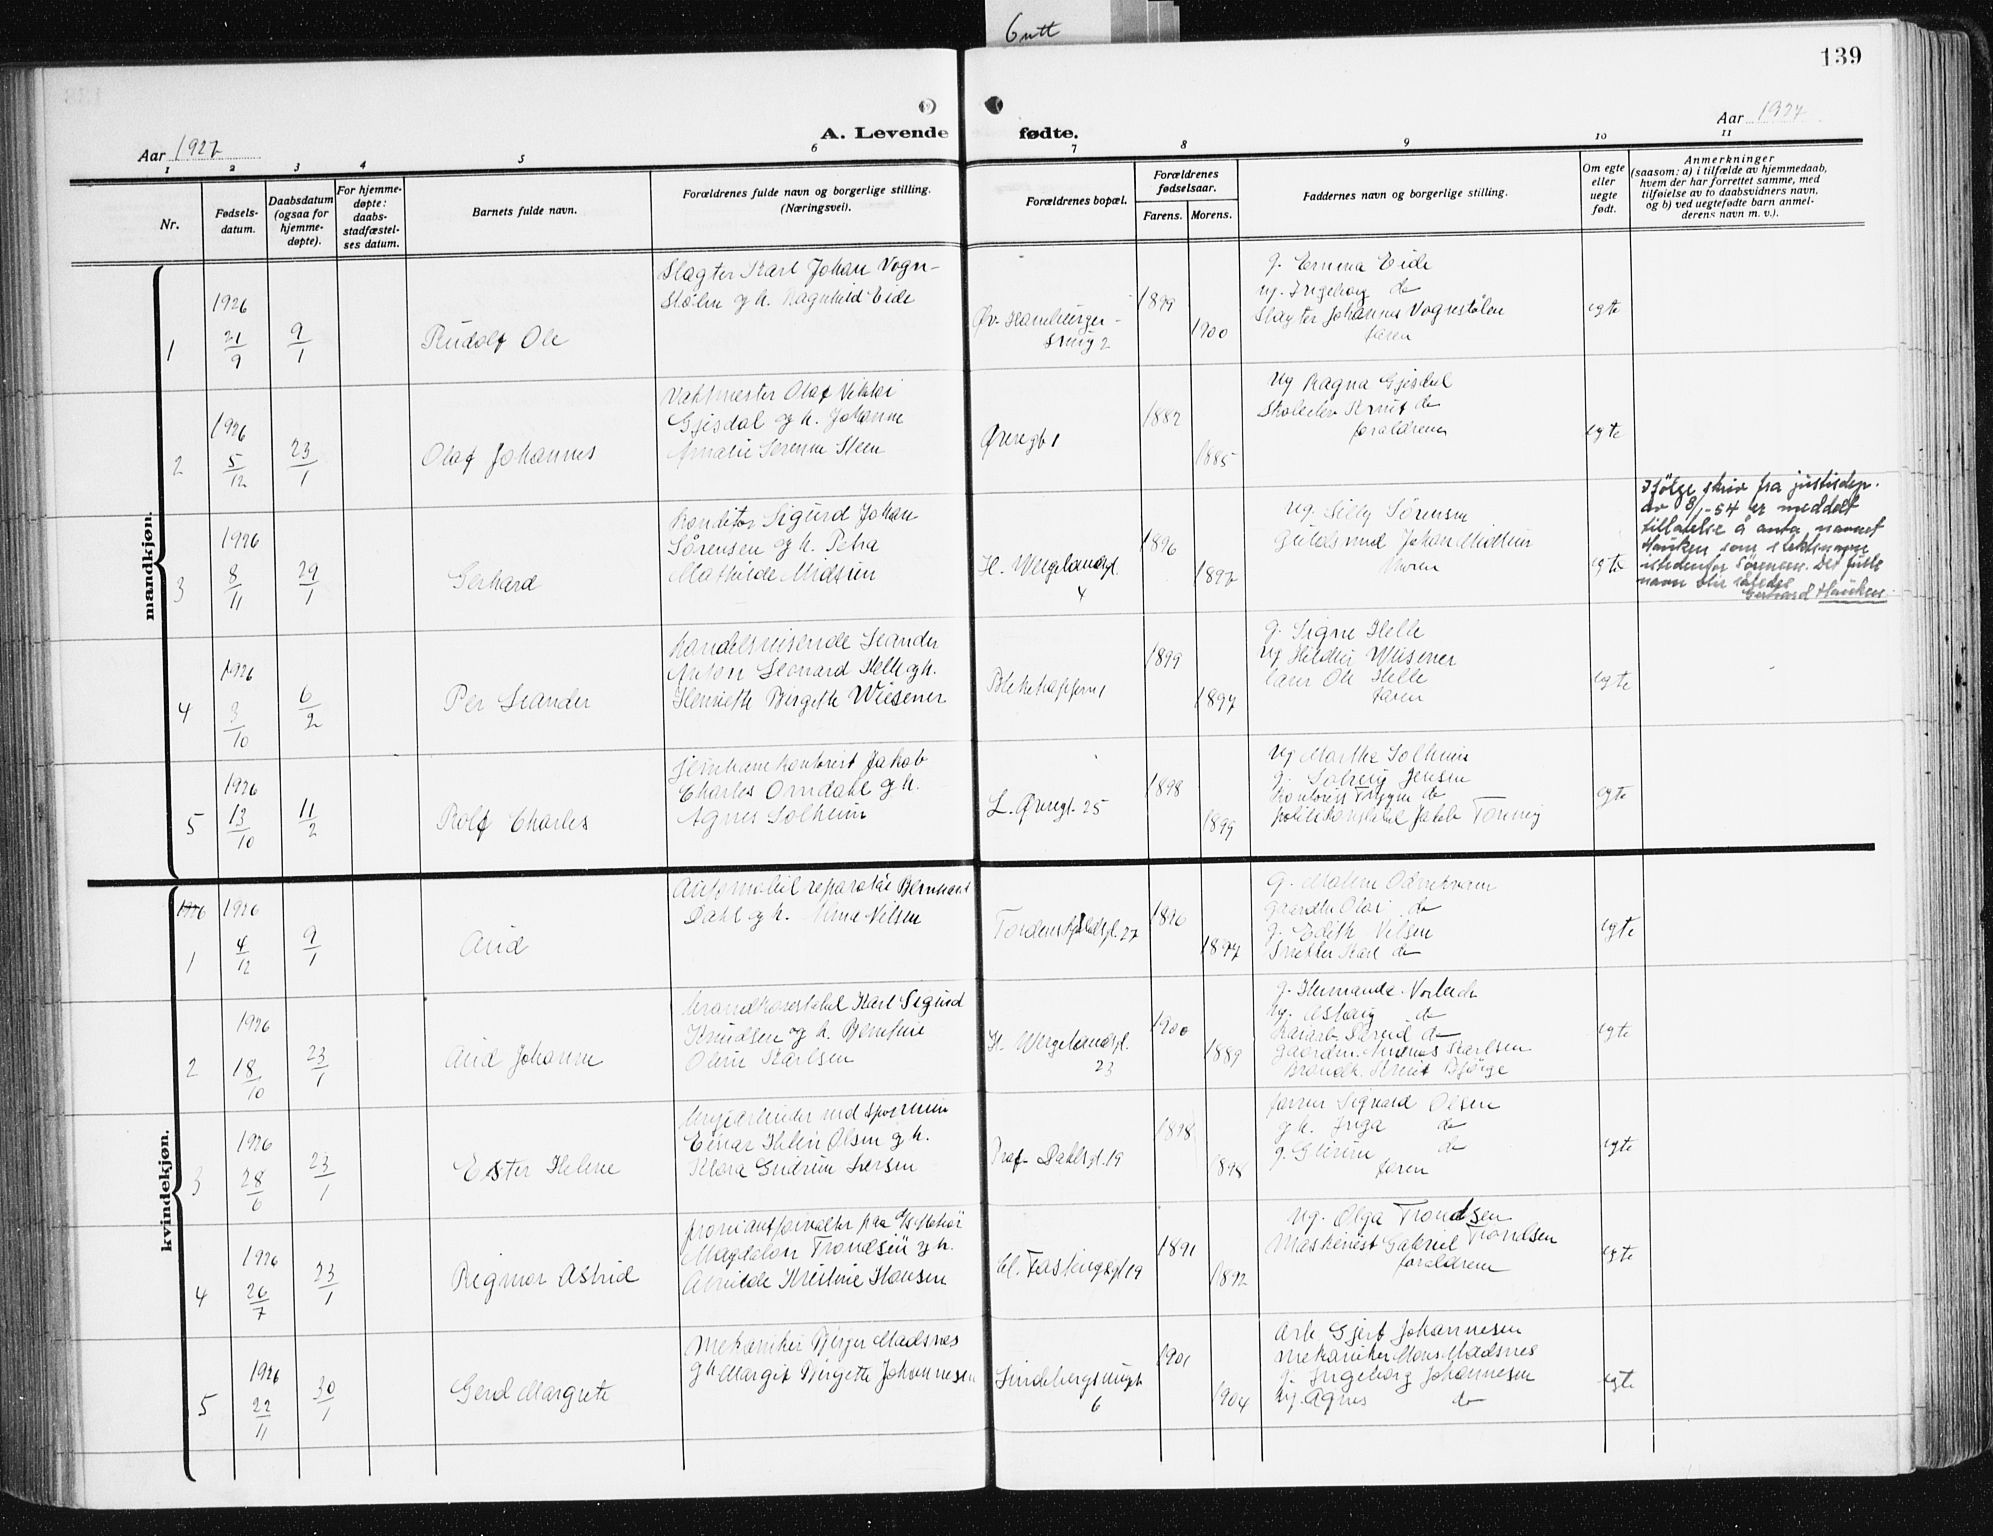 6 utt
139
Aar 1927
A. Levende fødte.
Aar 1927
1 2 3 4 5 6 7 8 9 10 11
Nr.
Fødsels-
datum.
Daabsdatum
(ogsaa for
hjemme-
døpte).
For hjemme-
døpte:
daabs-
stadfæstel-
ses datum.
Barnets fulde navn.
Forældrenes fulde navn og borgerlige stilling.
(Næringsvei).
Forældrenes bopæl.
Forældrenes
fødselsaar.
Farens. Morens.
Faddernes navn og borgerlige stilling.
Om egte
eller
uegte
født.
Anmerkninger
(saasom: a) i tilfælde av hjemmedaab,
hvem der har forrettet samme, med
tilføielse av to daabsvidners navn,
og b) ved uegtefødte barn anmel-
derens navn m. v.).
mandkjøn.
1
1926
21/9
9/1
Rudolf Ole
Slagter Karl Johan Vogn-
stølen og h. Ragnhild Eide
Øv. Hamburger-
smug 2
1899
1900
g. Emma Eide
ug. Ingeborg do
Slagter Johannes Vognstølen
faren
egte
2
1926
5/12
23/1
Olaf Johannes
Vaktmester Olaf Viktor
Gjesdal og h. Johanne
Amalie Sørenne Steen
Øvregt. 1
1882
1885
ug Ragna Gjesdal
Skoleelev Knut do
forældrene
egte
3
1926
8/11
29/1
Gerhard
Konditor Sigurd Johan
Sørensen og h. Petra
Mathilde Midtun
H. Wergelandsgt.
4
1896
1897
ug. Silly Sørensen
Guldsmed Johan Midtun
Moren
egte
Ifølge skriv fra justisdep.
av 8/1-54 er meddelt
tillatelse å anta navnet
Hauken som slektsnavn
istedenfor Sørensen. Det fulle
navn blir således
Gerhard Hauken.
4
1926
3/10
6/2
Per Leander
Handelsreisende Leander
Anton Leonard Helle g h.
Henriette Birgithe Wiesener
Blekehagen 1
1899
1897
g. Signe Helle
ug Hildur Wiesener
Ole Helle
faren
egte
5
1926
13/10
11/2
Rolf Charles
Jernbanekontorist Jakob
Charles Omdahl g h.
Agnes Solheim
L. Øvregt. 25
1898
1899
ug Martha Solheim
g. Solveig Jensen
Kontorist Trygve do
politikonstabel Jakob
egte
kvindekjøn.
1
1926
4/12
9/1
Aud
Automobilreparatør Bernhard
Dahl og h. Alma Nilsen
Tordenskjoldsgt. 27
1896
1897
g. Malene
Olai do
g. Edith Nilsen
Snekker Karl do
egte
2
1926
18/10
23/1
Aud Johanne
Brandkonstabel Karl Sigurd
Knudsen og h. Bernhine
Oline Karlsen
H. Wergelandsgt.
23
1900
1889
ug. Astrid do
gaardm. Andreas Karlsen
Brandk. Knut Bjørge
egte
3
1926
28/6
23/1
Ester Helene
Einar Helin Olsen g h.
Klara Gudrun Larsen
Prof. Dahlsgt. 19
1898
1898
Sigvard Olsen
g h. Inga do
g. do
faren
egte
4
1926
26/7
23/1
Rigmor Astrid
proviantforvalter paa
Magdalon Trondsen g h.
Alvilde Kristine Hansen
Cl. Fastingsgt 19
1891
1892
ug. Olga Trondsen
Maskinist Gabriel Trondsen
forældrene
egte
5
1926
22/11
30/1
Gerd Margrete
Mekaniker Birger Madsnes
g h Margit Birgitte Johannesen
6
1901
1904
Arb. Gjert Johannesen
Mekaniker Mons Madsnes
g. Ingeborg Johannesen
ug. Agnes do
egte